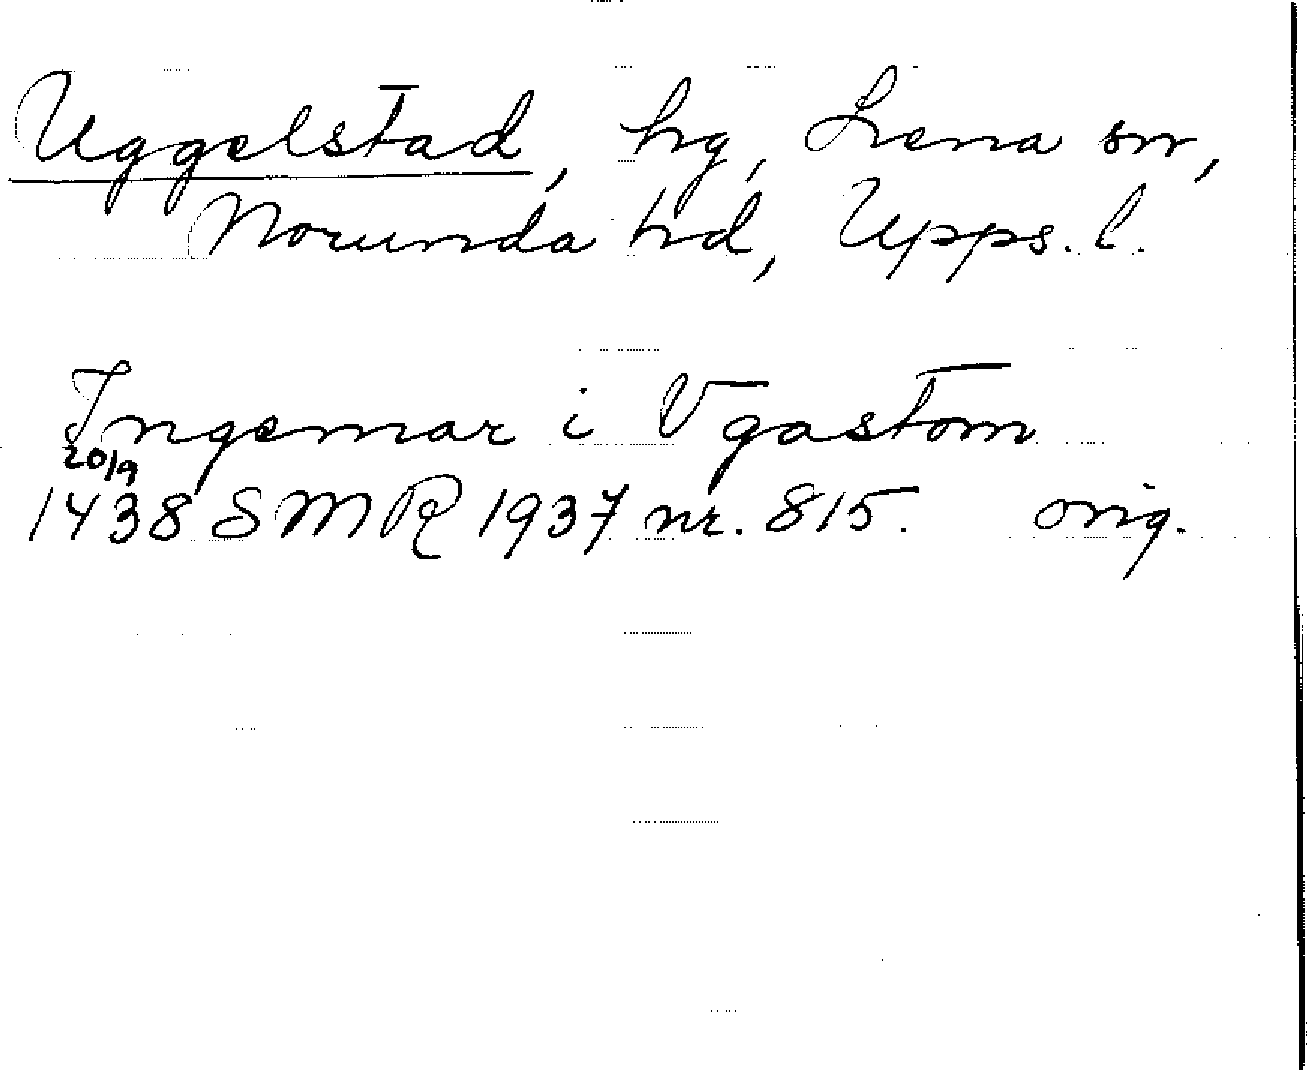 Uggelstad, hg, Lena sn,
Norunda hd, Upps. l.
Ingemar i Vgastom
20/9
1438 SMR 1937 nr. 815. orig.